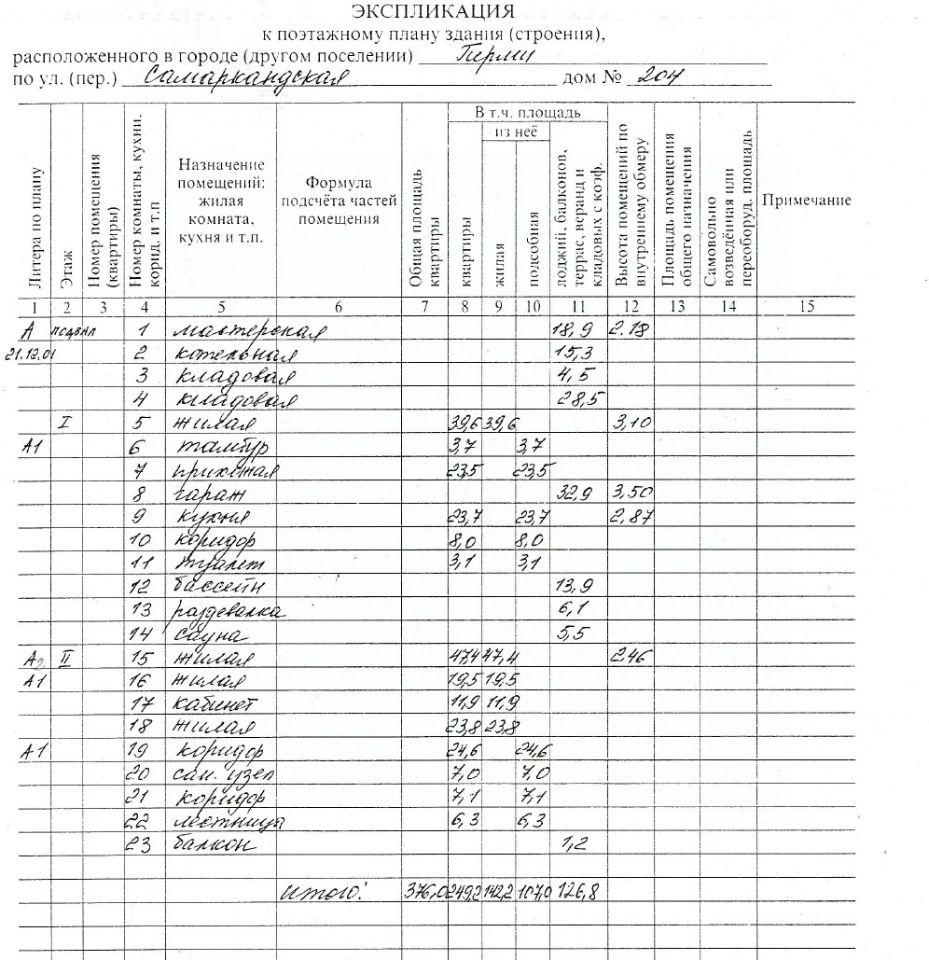 ЭКСПЛИКАЦИЯ
к поэтажному плану здания (строения),
расположенного в городе (другом поселении) Перми
по ул. (пер.) Самаркандская дом № 204
Литера по плану
Этаж
Номер помещения (квартиры)
Номер комнаты, кухни. корид. и т.п
Назначение помещений: жилая комната, кухня и т.п.
Формула подсчёта частей помещения
Общая площадь квартиры
В т.ч. площадь
из неё
квартиры
жилая
подсобная
лоджий, балконов, террас, веранд и кладовых с коэф.
Высота помещений по внутреннему обмеру
Площадь помещения общего назначения
Самовольно возведённая или переоборуд. площадь
Примечание
1 2 3 4 5 6 7 8 9 10 11 12 13 14 15
А подвал 1 мастерская 18,9 2.18
21.12.01 2 котельная 15,3
3 кладовая 4,5
4 кладовая 28,5
I 5 жилая 39,6 39,6 3,10
А1 6 тамбур 3,7 3,7
7 прихожая 23,5 23,5
8 гараж 32,9 3,50
9 кухня 23,7 23,7 2,87
10 коридор 8,0 8,0
11 туалет 3,1 3,1
12 бассейн 13,9
13 раздевалка 6,1
14 сауна 5,5
А2 II 15 жилая 47,4 47,4 2.46
А1 16 жилая 19,5 19,5
17 кабинет 11,9 11,9
18 жилая 23,8 23,8
А1 19 коридор 24,6 24,6
20 сан. узел 7,0 7,0
21 коридор 7,1 7,1
22 лестница 6,3 6,3
23 балкон 1,2
итого: 376,0 249,2 142,2 107,0 126,8